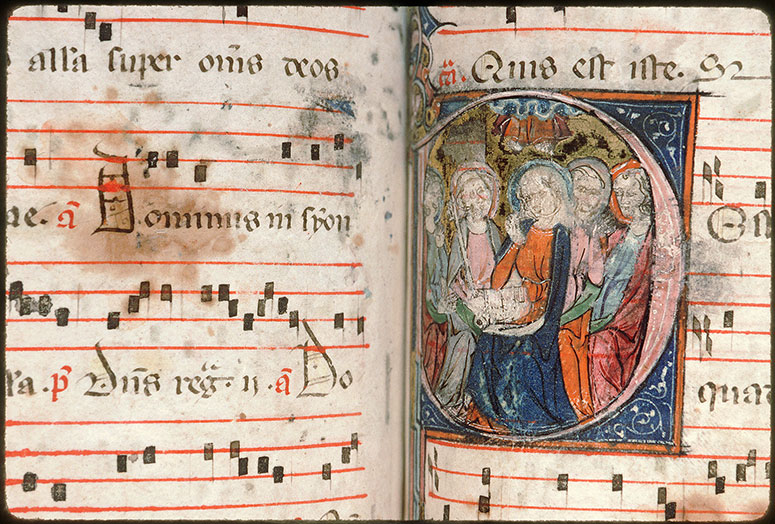 all'a super om̄s deos
ae. a Dominus in syon
a. p Dn̄s reg. ij a Do
Quis est iste.
quar